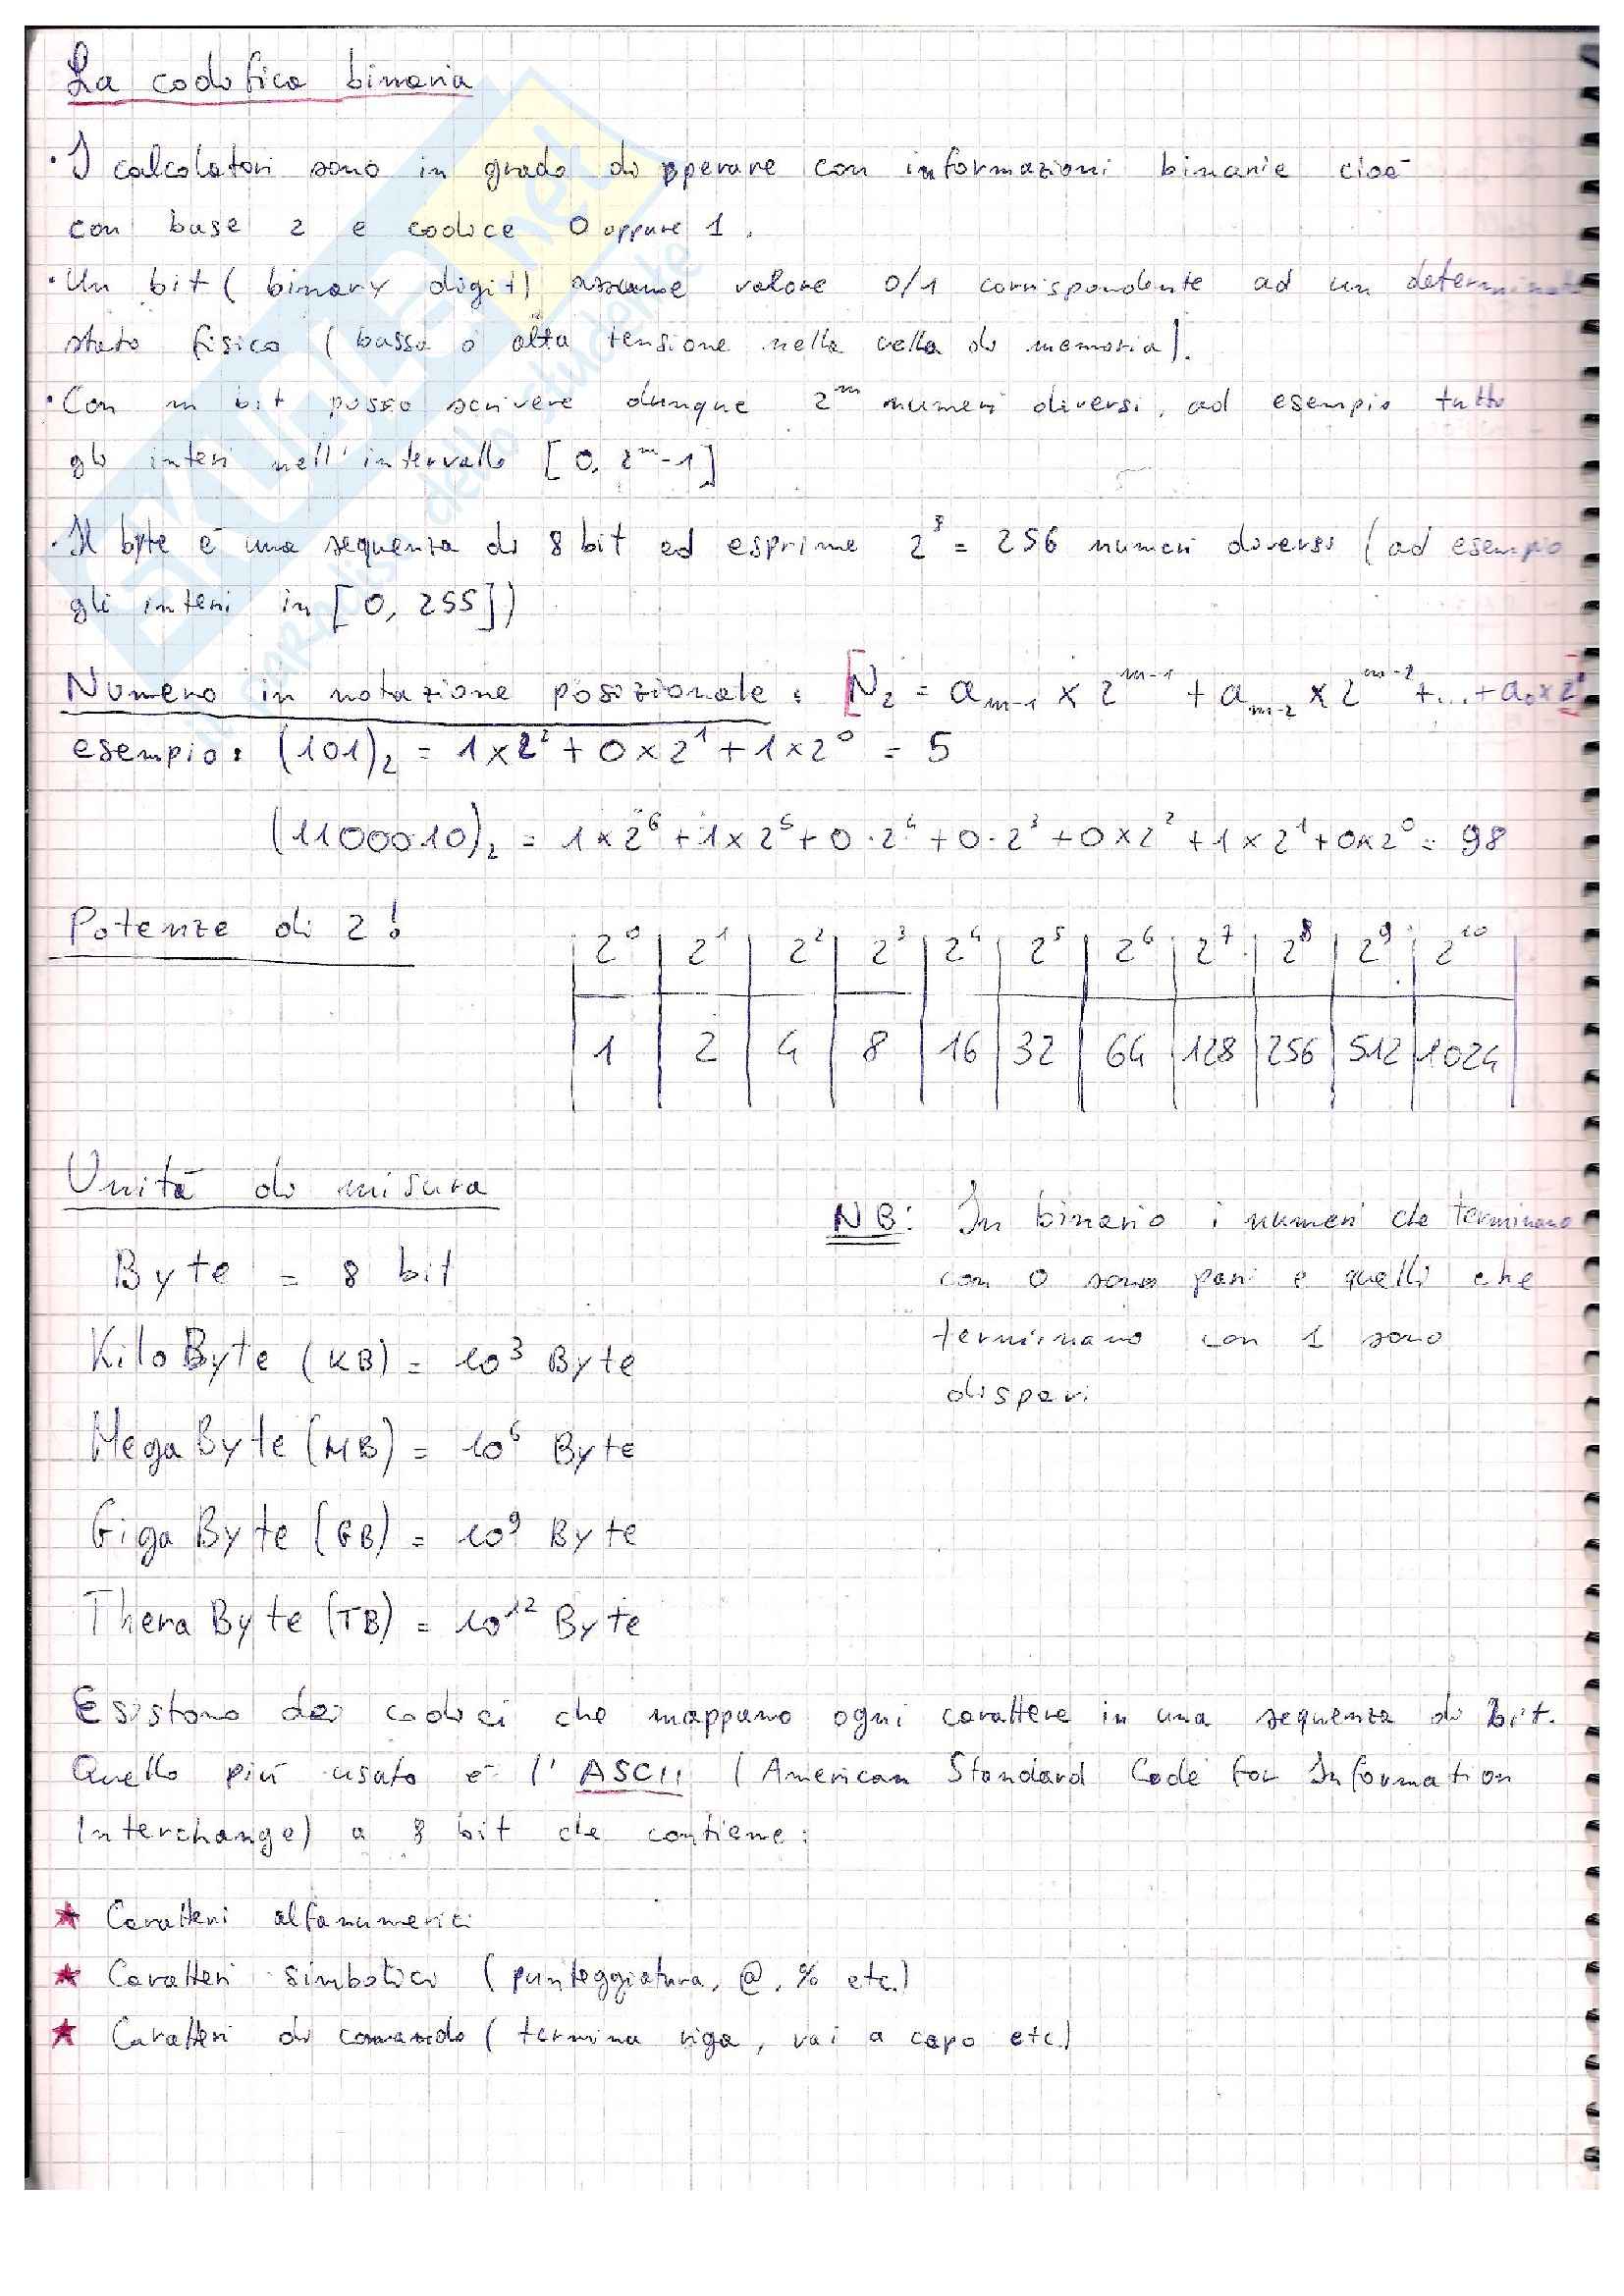 La codifica binaria
• I calcolatori sono in grado di operare con informazioni binarie cioè
con base 2 e codice 0 oppure 1.
• Un bit ( binary digit) assume valore 0/1 corrispondente ad un determinato
stato fisico ( bassa o alta tensione nella cella di memoria).
• Con m bit posso scrivere dunque 2^m numeri diversi, ad esempio tutti
gli interi nell'intervallo [0, 2^m-1]
• Il byte è una sequenza di 8 bit ed esprime 2^8 = 256 numeri diversi ( ad esempio
gli interi in [0, 255])
Numero in notazione posizionale : [N₂ = a_m-1 × 2^m-1 + a_m-2 × 2^m-2 +...+ a₀ × 2^0]
esempio: (101)₂ = 1×2² + 0×2¹ + 1×2⁰ = 5
(1100010)₂ = 1×2⁶ + 1×2⁵ + 0·2⁴ + 0·2³ + 0×2² + 1×2¹ + 0×2⁰ = 98
Potenze di 2!
2⁰ 2¹ 2² 2³ 2⁴ 2⁵ 2⁶ 2⁷ 2⁸ 2⁹ 2¹⁰
1 2 4 8 16 32 64 128 256 512 1024
Unità di misura
Byte = 8 bit
KiloByte (KB) = 10³ Byte
MegaByte (MB) = 10⁶ Byte
GigaByte (GB) = 10⁹ Byte
TheraByte (TB) = 10¹² Byte
NB: In binario i numeri che terminano
con 0 sono pari e quelli che
terminano con 1 sono
dispari
Esistono dei codici che mappano ogni carattere in una sequenza di bit.
Quello più usato è l'ASCII (American Standard Code for Information
Interchange) a 8 bit che contiene:
★ Caratteri alfanumerici
★ Caratteri simbolici (punteggiatura, @, % etc.)
★ Caratteri di comando ( termina riga, vai a capo etc.)